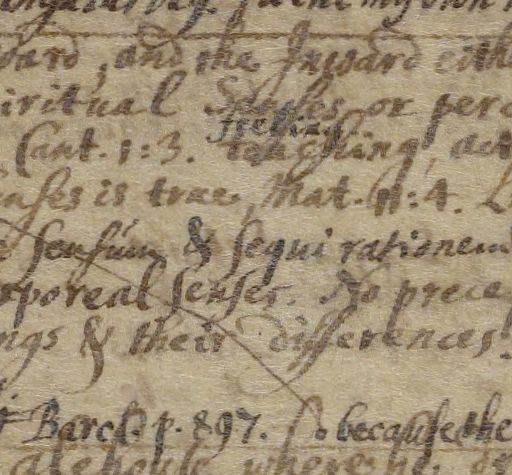 ward, and the Inward eith
iritual Senses or perc
feeling
Cant. 1:3. touching, act
enses is true, Mat. 11:4. L
sensum & sequi rationem
rporeal senses. So prece
ngs & their differences.
Barcl. p. 897. So because the
where